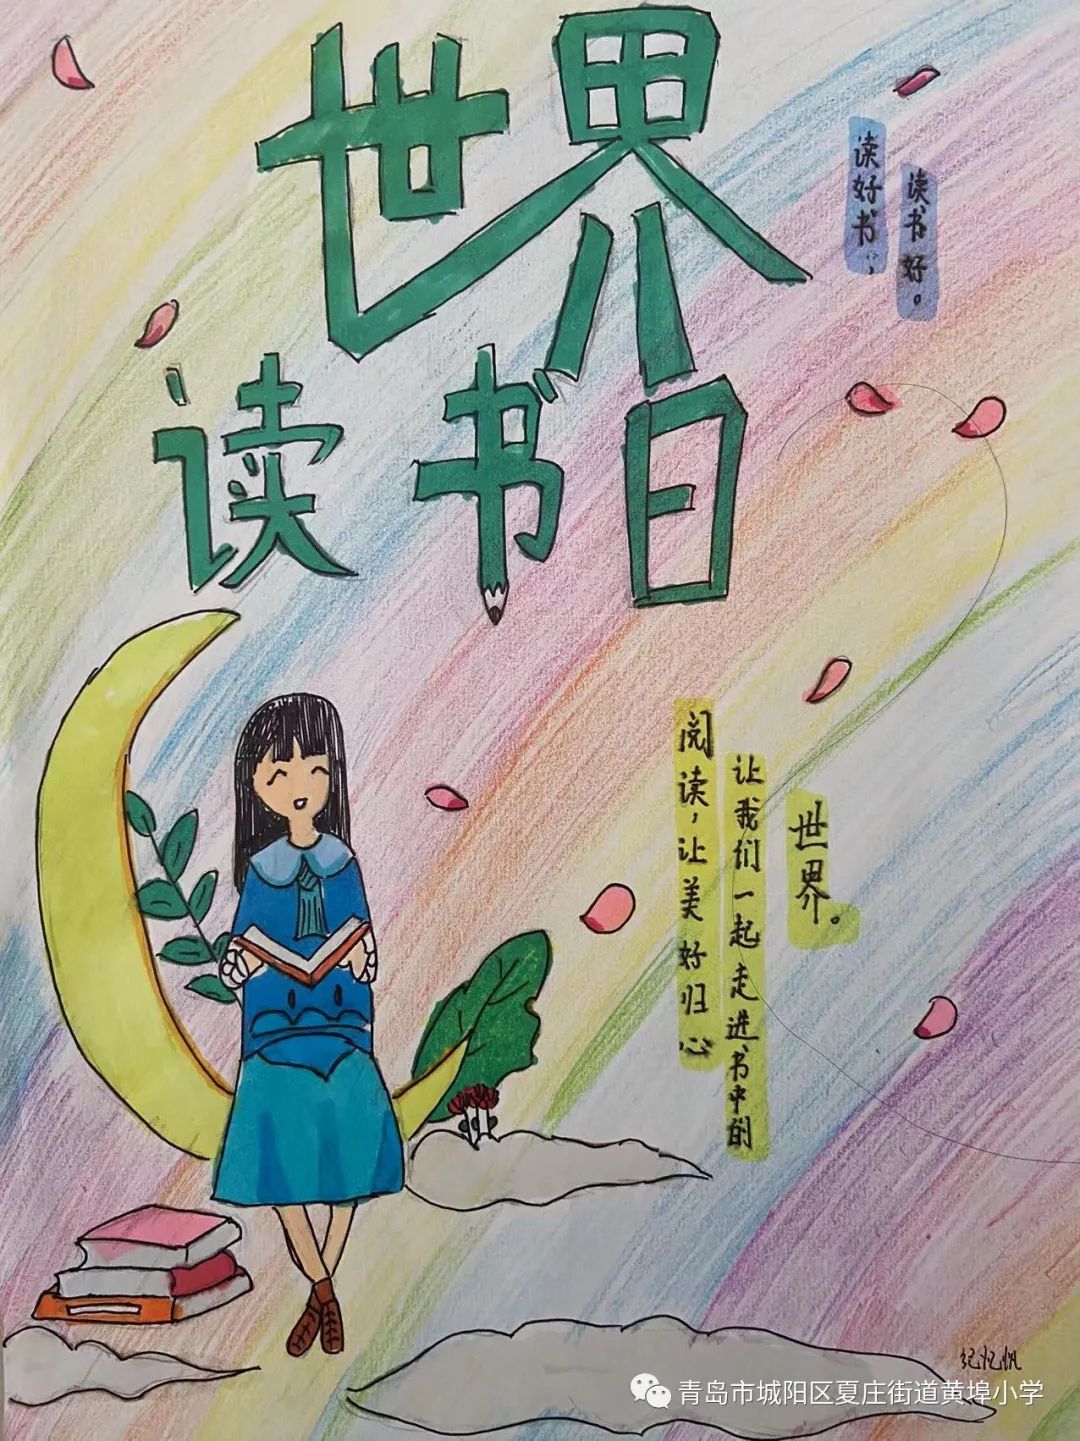 世界
读书日
读好书，
读书好。
阅读，让美好归心
让我们一起走进书中的
世界。
纪忆帆
青岛市城阳区夏庄街道黄埠小学